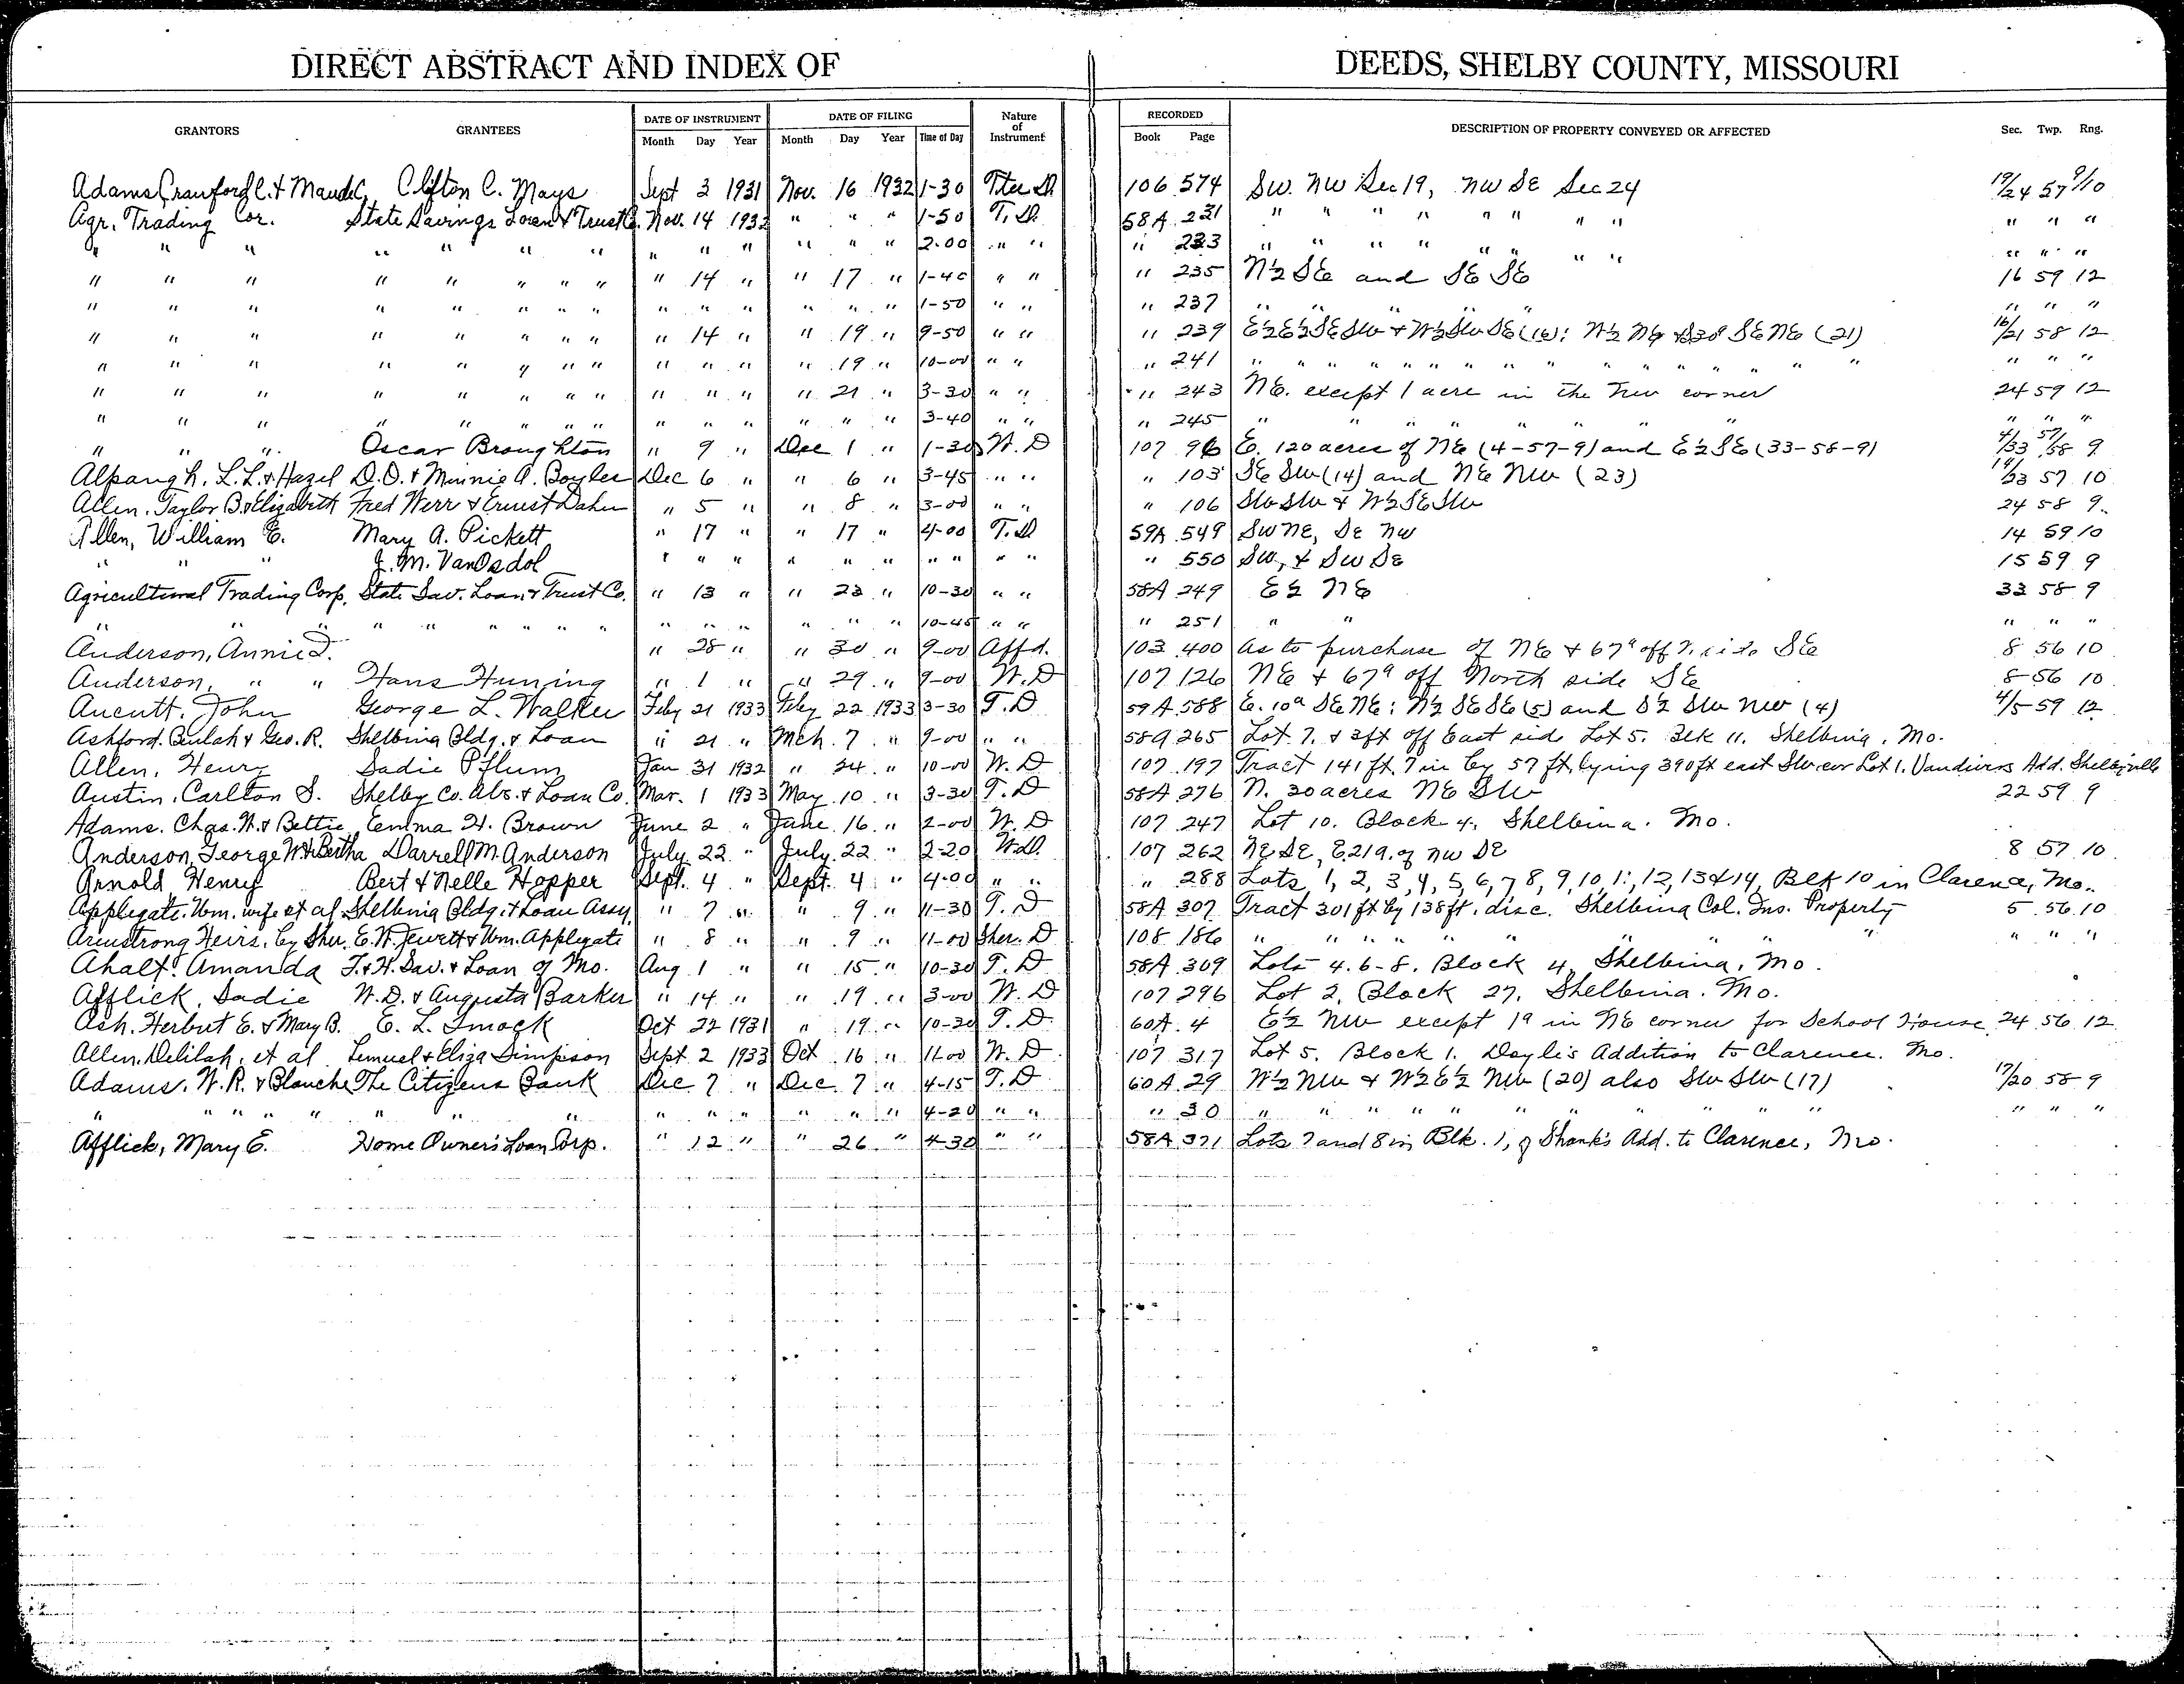 DIRECT ABSTRACT AND INDEX OF DEEDS, SHELBY COUNTY, MISSOURI
GRANTORS GRANTEES DATE OF INSTRUMENT DATE OF FILING Nature of Instrument RECORDED DESCRIPTION OF PROPERTY CONVEYED OR AFFECTED Sec. Twp. Rng.
Month Day Year Month Day Year Time of Day Book Page
Adams Crawford C. & Maude C. Clifton C. Mays Sept 3 1931 Nov. 16 1932 1-30 106 574 SW. NW Sec 19, NW SE Sec 24 19/24 57 9/10
Agr. Trading Cor. State Savings Loan & Trust Co. Nov. 14 1932 " " " 1-50 T. D. 58A 231 " " " " " " " " " " "
" " " " " " " " " " " " " " 2-00 " " " 233 " " " " " " " " " " "
" " " " " " " " " 14 " " 17 " 1-40 " " " 235 N½ SE and SE SE 16 59 12
" " " " " " " " " " " " " " 1-50 " " " 237 " " " " " " " "
" " " " " " " " " 14 " " 19 " 9-50 " " " 239 E½E½SE SW & W½SW SE (16): W½ NE & SE NE (21) 16/21 58 12
" " " " " " " " " " " " 19 " 10-00 " " " 241 " " " " " " " " " " " " " " "
" " " " " " " " " " " " 21 " 3-30 " " " 243 NE. except 1 acre in the NW corner 24 59 12
" " " " " " " " " " " " " " 3-40 " " " 245 " " " " " " " " " " "
" " " Oscar Broughton " 9 " Dec 1 " 1-30 W. D 107 96 E. 120 acres of NE (4-57-9) and E½ SE (33-58-9) 4/33 57/58 9
Alpaugh. L. L. & Hazel D. O. & Minnie A. Boyles Dec 6 " " 6 " 3-45 " " " 103 SE SW (14) and NE NW (23) 14/23 57 10
Allen. Taylor B. & Elizabeth Fred Werr & Ernst Dahn " 5 " " 8 " 3-00 " " " 106 SW SW & W½ SE SW 24 58 9
Allen, William E. Mary A. Pickett " 17 " " 17 " 4-00 T. D 59A 549 SW NE, SE NW 14 59 10
" " " J. M. VanOsdol " " " " " " " " " " " 550 SW, & SW SE 15 59 9
Agricultural Trading Corp. State Sav. Loan & Trust Co. " 13 " " 23 " 10-30 " " 58A 249 E½ NE 33 58 9
" " " " " " " " " " " " " " 10-45 " " " 251 " " " " "
Anderson, Annie D. " 28 " " 30 " 9-00 Affd. 103 400 as to purchase of NE & 67ᵃ off N. side SE 8 56 10
Anderson, " " Hans Huning " 1 " " 29 " 9-00 W. D 107 126 NE & 67ᵃ off North side SE 8 56 10
Aucutt. John George L. Walker Feby 21 1933 Feby 22 1933 3-30 T. D 59A 588 E. 10ᵃ SE NE: N½ SE SE (5) and S½ SW NW (4) 4/5 59 12
Ashford. Beulah & Geo. R. Shelbina Bldg. & Loan " 21 " Mch. 7 " 9-00 " " 58A 265 Lot 7. & 3ft off East side Lot 5. Blk 11. Shelbina. Mo.
Allen, Henry Sadie Pflum Jan 31 1932 " 24 " 10-00 W. D 107 197 Tract 141 ft. 7 in by 57 ft. lying 390 ft east SW cor Lot 1. Vandivers Add. Shelbyville
Austin. Carlton S. Shelby Co. Abs. & Loan Co. Mar. 1 1933 May 10 " 3-30 T. D 58A 276 N. 30 acres NE SW 22 59 9
Adams. Chas. W. & Bettie Emma H. Brown June 2 " June 16 " 2-00 W. D 107 247 Lot 10. Block 4, Shelbina. Mo.
Anderson, George W. & Bertha Darrell M. Anderson July 22 " July 22 " 2-20 W.D. 107 262 NE SE, E 21a. of NW SE 8 57 10
Arnold Henry Bert & Nelle Hopper Sept. 4 " Sept. 4 " 4-00 " " " 288 Lots 1, 2, 3, 4, 5, 6, 7, 8, 9, 10, 11, 12, 13 & 14, Blk 10 in Clarence, Mo.
Applegate. Wm. wife et al Shelbina Bldg. & Loan Assn " 7 " " 9 " 11-30 T. D 58A 307 Tract 301 ft by 138 ft. disc. Shelbina Col. Ins. Property 5 56 10
Armstrong Heirs. by Sher. E. W. Jewett & Wm. Applegate " 8 " " 9 " 11-00 Sher. D 108 186 " " " " " " " " " " " "
Ahalt. Amanda F. & H. Sav. & Loan of Mo. Aug 1 " " 15 " 10-30 T. D 58A 309 Lots 4. 6-8. Block 4, Shelbina, Mo.
Afflick, Sadie W. D. & Augusta Barker " 14 " " 19 " 3-00 W. D 107 296 Lot 2. Block 27. Shelbina. Mo.
Ash. Herbert E. & Mary B. E. L. Smock Oct 22 1931 " 19 " 10-30 T. D. 60A. 4 E½ NW except 1ᵃ in NE corner for School House 24 56 12
Allen. Delilah, et al Lemuel & Eliza Simpson Sept. 2 1933 Oct 16 " 11-00 W. D 107 317 Lot 5. Block 1. Doyle's Addition to Clarence. Mo.
Adams. W. R. & Blanche The Citizens Bank Dec 7 " Dec. 7 " 4-15 T. D 60A. 29 W½ NW & W½ E½ NW (20) also SW SW (17) 17/20 58 9
" " " " " " " " " " " " " " 4-20 " " " 30 " " " " " " " " " " " " "
Afflick, Mary E. Home Owner's Loan Corp. " 12 " " 26 " 4-30 " " 58A 371 Lots 7 and 8 in Blk. 1, of Shank's Add. to Clarence, Mo.